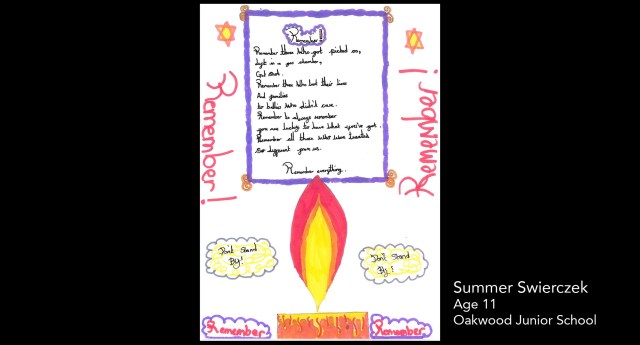 Remember!!
Remember those who got picked on,
Kept in a gas chamber,
Got shot.
Remember those who lost their lives
And families
to bullies who didn't care.
Remember to always remember
you are lucky to have what you've got.
Remember all those who were treated
So different from us.
Remember everything..
Remember!
Remember!
Don't Stand
By!
Don't Stand
By!
Remember
Remember
Summer Swierczek
Age 11
Oakwood Junior School